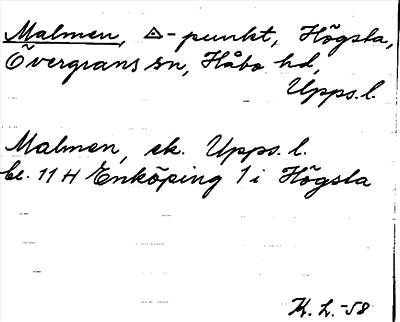 Malmen, △-punkt, Högsta,
Övergrans sn, Håbo hd,
Upps. l.
Malmen, ek. Upps. l.
bl. 11 H Enköping 1 i Högsta
K. L. -58